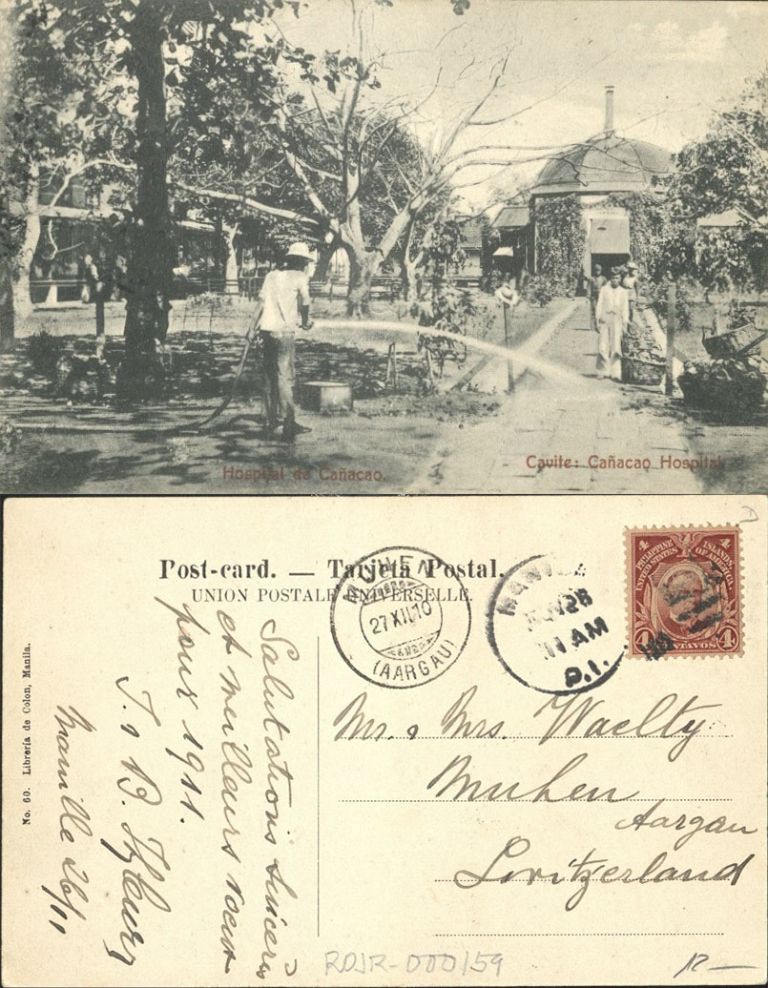 Hospital de Cañacao.
Cavite: Cañacao Hospital
Post-card. — Tarjeta Postal.
UNION POSTALE UNIVERSELLE.
MUHEN
27.XII.10
(AARGAU)
28
11 AM
P.I.
4 4
PHILIPPINE ISLANDS
UNITED STATES OF AMERICA
4 CENTAVOS 4
No. 60. Librería de Colon, Manila.
Salutations sincères
et meilleurs voeux
pour 1911.
Manille 26/11
Mr. & Mrs. Waelty
Muhen
Aargau
Switzerland
RDJR-000159